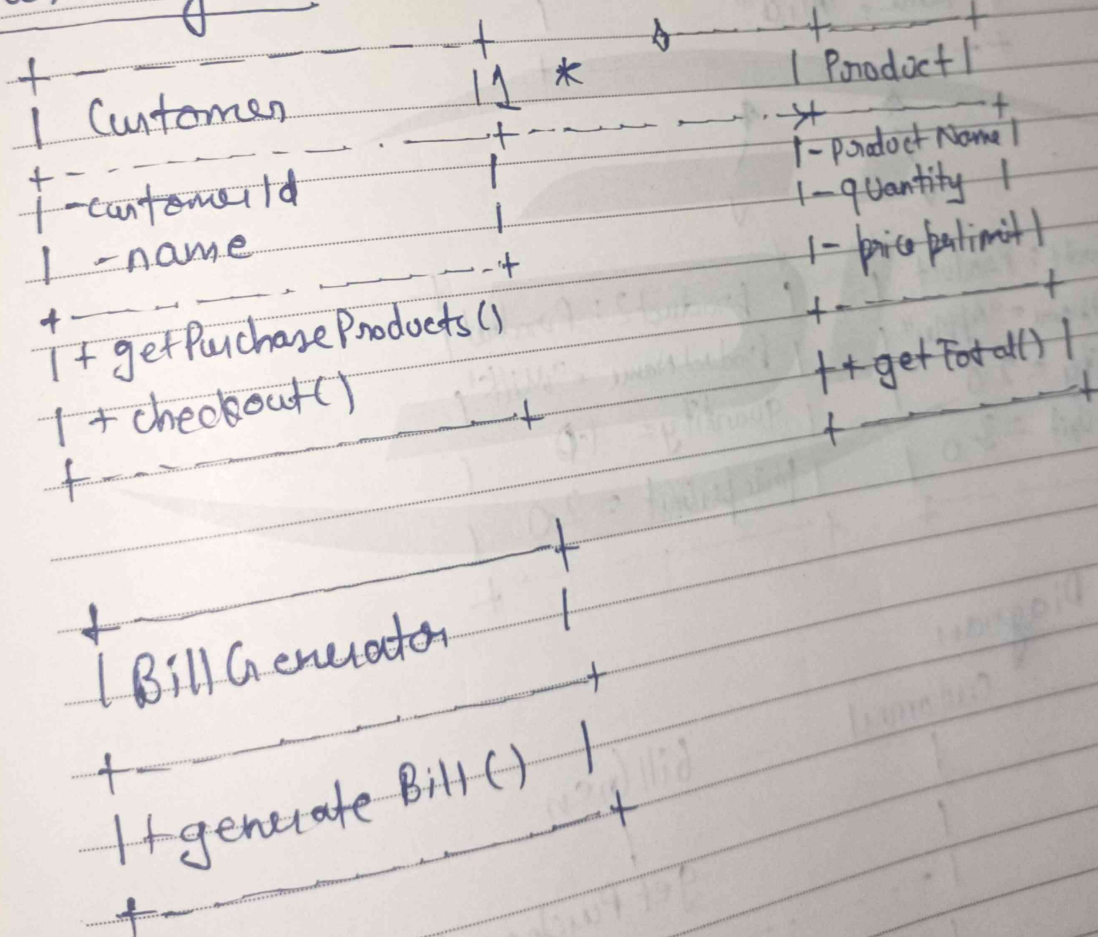 Customer
1 *
Product
- customerId
- name
+ getPurchaseProducts()
+ checkout()
- productName
- quantity
- price
+ getTotal()
BillGenerator
+ generateBill()